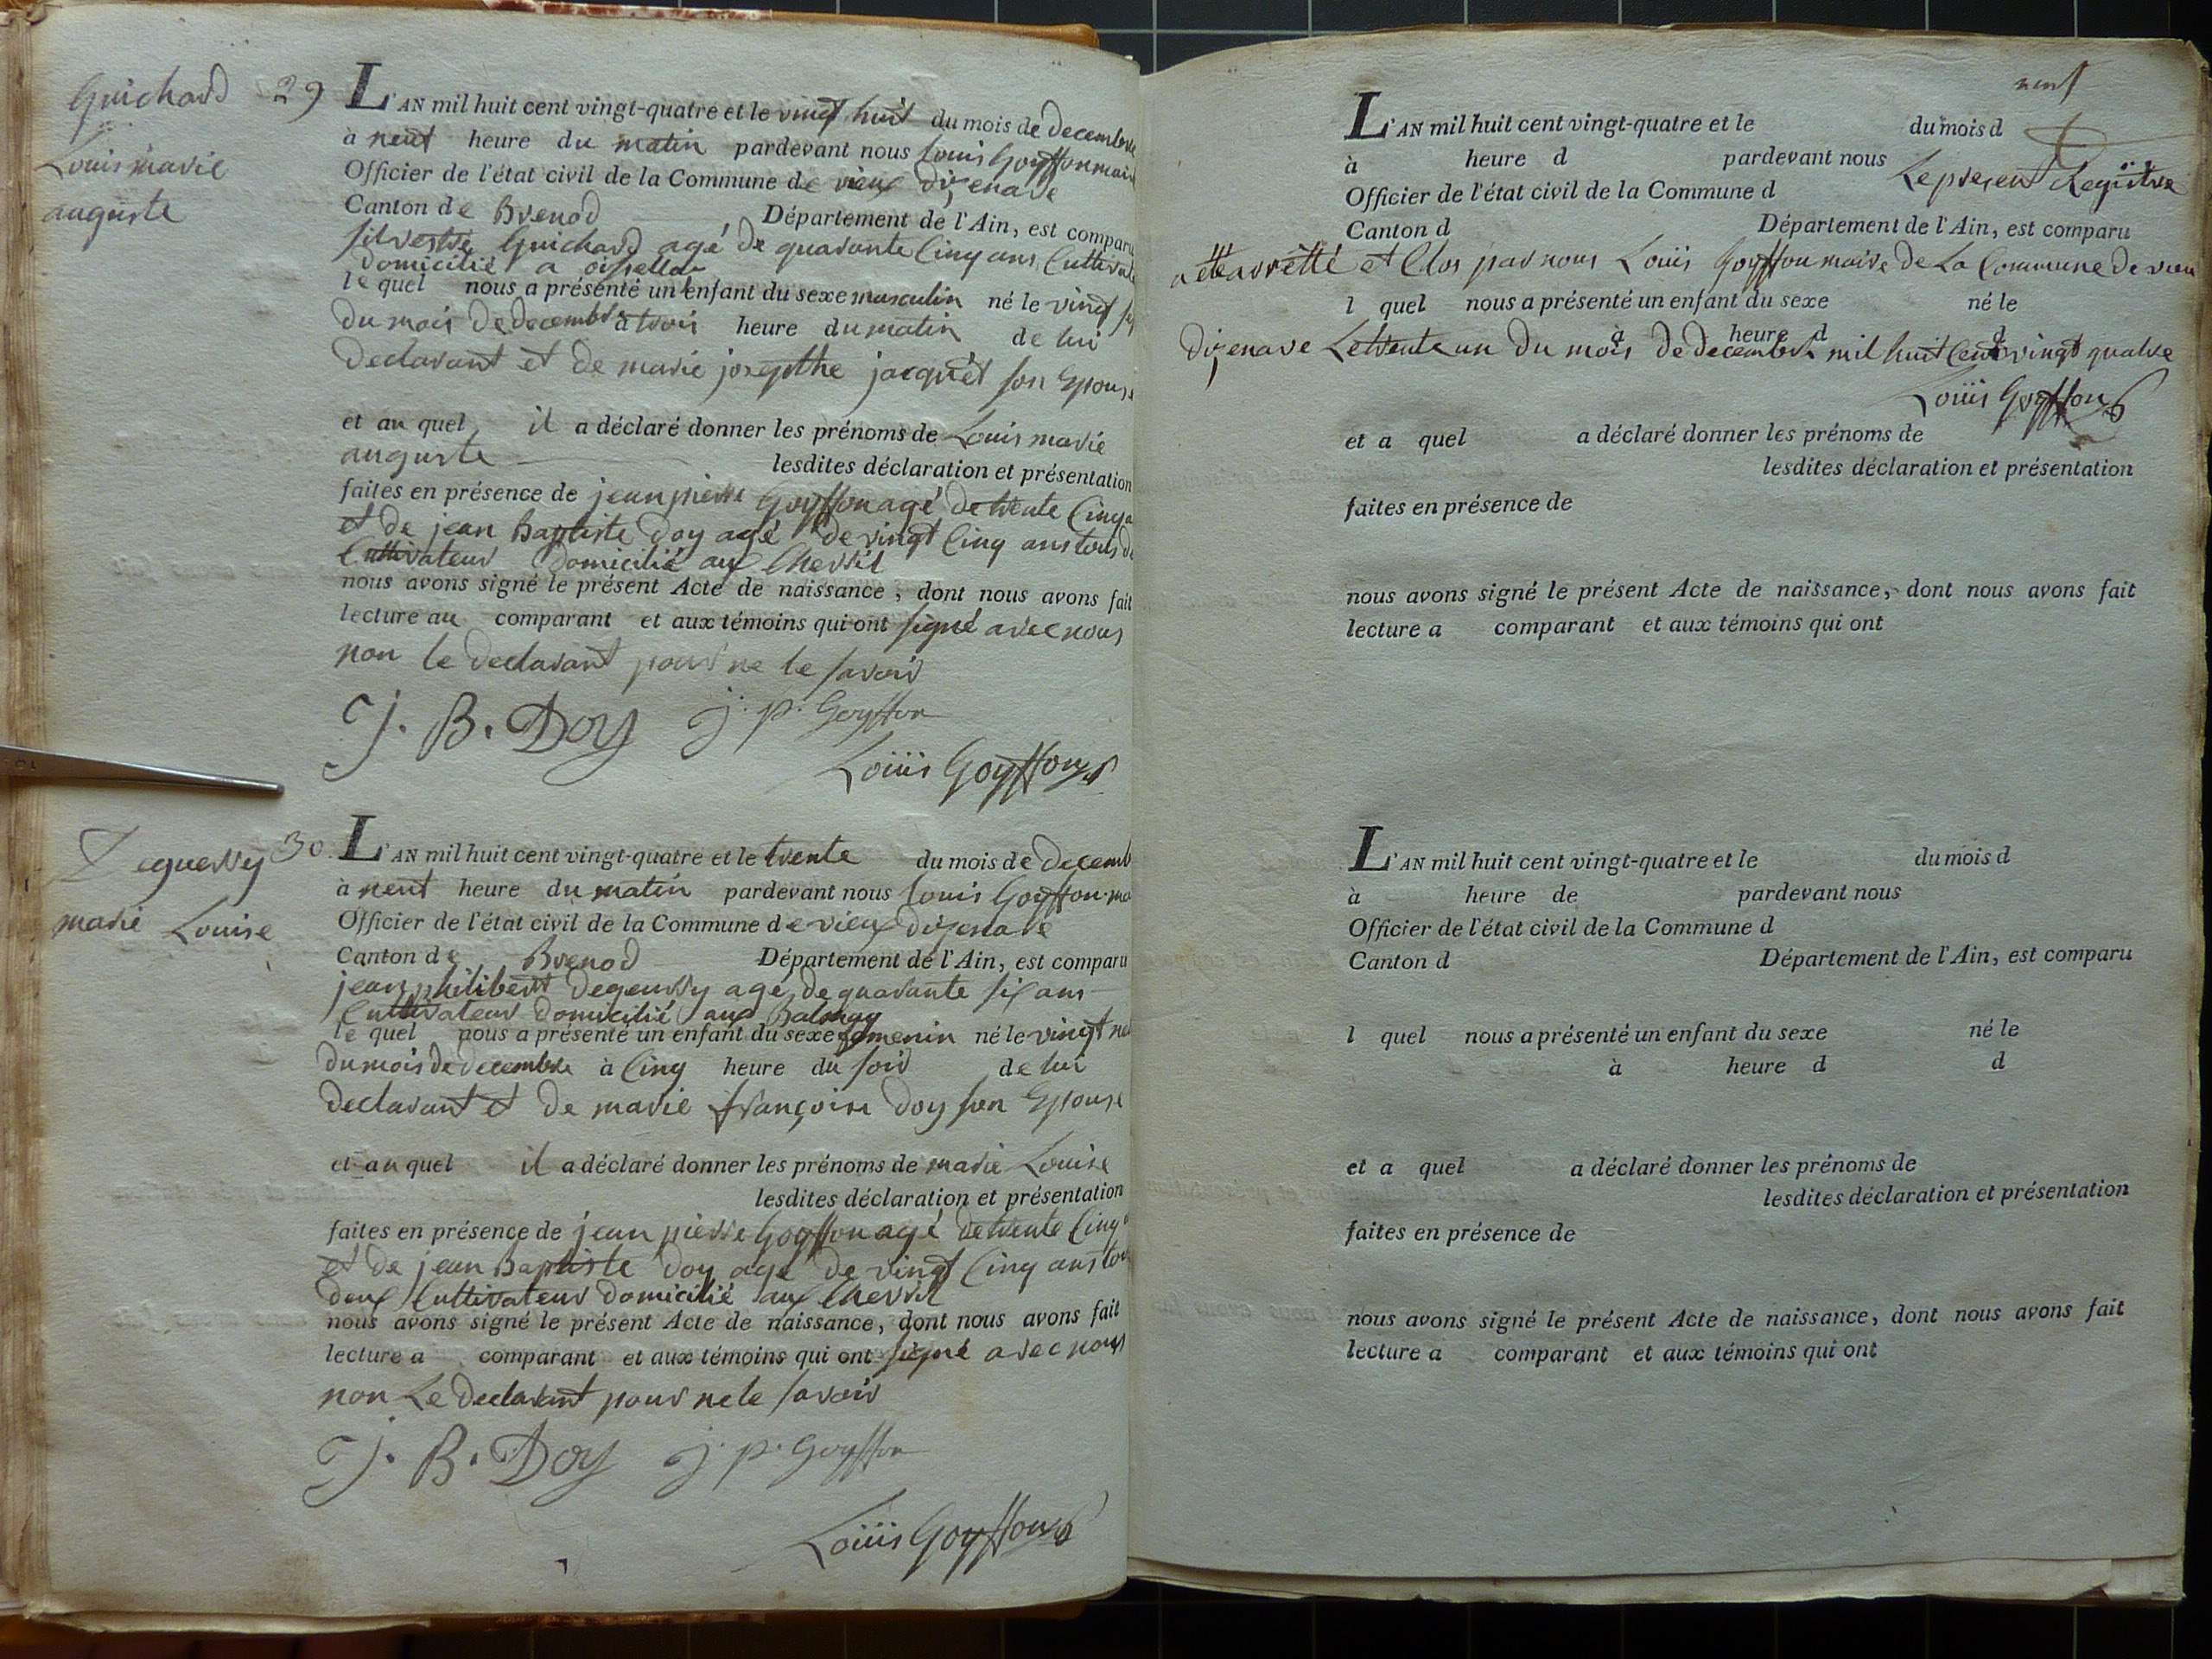 Guichard 29
Louis marie
auguste
L'AN mil huit cent vingt-quatre et le vingt huit du mois de decembre
à neuf heure du matin pardevant nous Louis Goyffon mair
Officier de l'état civil de la Commune de vieux dizenave
Canton de Brenod Département de l'Ain, est comparu
silvestre Guichard agé de quarante Cinq ans Cultivate
domicilié a oissellaz
le quel nous a présenté un enfant du sexe masculin né le vingt
du mois de decembre à trois heure du matin de lui
declarant et de marie josepthe jacquet son Epouse
et au quel il a déclaré donner les prénoms de Louis marie
auguste lesdites déclaration et présentation
faites en présence de jean pierre Goyffon agé de trente Cinq a
et de jean Baptiste Doy agé de vingt Cinq ans tous d
Cultivateur Domicilié aux Chevril
nous avons signé le présent Acte de naissance, dont nous avons fait
lecture au comparant et aux témoins qui ont signé avec nous
non le declarant pour ne le savoir
J. B. Doy j. p. Goyffon
Loüis Goyffon
Deguerry 30
marie Louise
L'AN mil huit cent vingt-quatre et le trente du mois de decemb
à neuf heure du matin pardevant nous Louis Goyffon ma
Officier de l'état civil de la Commune de vieux dizenave
Canton de Brenod Département de l'Ain, est comparu
jean philibert Degeurry agé de quarante six ans
Cultivateur domicilié aux
le quel nous a présenté un enfant du sexe femenin né le vingt ne
du mois de decembre à Cinq heure du soir de lui
declarant et de marie françoise Doy son Epouse
et au quel il a déclaré donner les prénoms de marie Louise
lesdites déclaration et présentation
faites en présence de jean pierre Goyffon agé de trente Cinq a
et de jean Baptiste Doy agé de vingt Cinq ans tou
deux Cultivateur domicilié aux Chevril
nous avons signé le présent Acte de naissance, dont nous avons fait
lecture a comparant et aux témoins qui ont signé avec nous
non Le declarant pour ne le savoir
J. B. Doy j. p. Goyffon
Loüis Goyffon
neuf
L'AN mil huit cent vingt-quatre et le du mois d
à heure d pardevant nous Le present Registre
Officier de l'état civil de la Commune d
Canton d Département de l'Ain, est comparu
a été arretté et Clos par nous Louis Goyffon maire de La Commune de vieu
l quel nous a présenté un enfant du sexe né le
à heure d d
dizenave Le trente un du mois de decembre mil huit Cent vingt quatre
Loüis Goyffon
et a quel a déclaré donner les prénoms de
lesdites déclaration et présentation
faites en présence de
nous avons signé le présent Acte de naissance, dont nous avons fait
lecture a comparant et aux témoins qui ont
L'AN mil huit cent vingt-quatre et le du mois d
à heure de pardevant nous
Officier de l'état civil de la Commune d
Canton d Département de l'Ain, est comparu
l quel nous a présenté un enfant du sexe né le
à heure d d
et a quel a déclaré donner les prénoms de
lesdites déclaration et présentation
faites en présence de
nous avons signé le présent Acte de naissance, dont nous avons fait
lecture a comparant et aux témoins qui ont